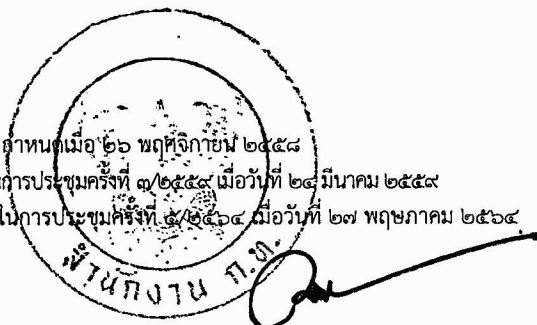 กำหนดเมื่อ ๒๖ พฤศจิกายน ๒๕๕๘
ในการประชุมครั้งที่ ๓/๒๕๕๙ เมื่อวันที่ ๒๔ มีนาคม ๒๕๕๙
ในการประชุมครั้งที่ ๕/๒๕๖๔ เมื่อวันที่ ๒๗ พฤษภาคม ๒๕๖๔
สำนักงาน ก.ท.